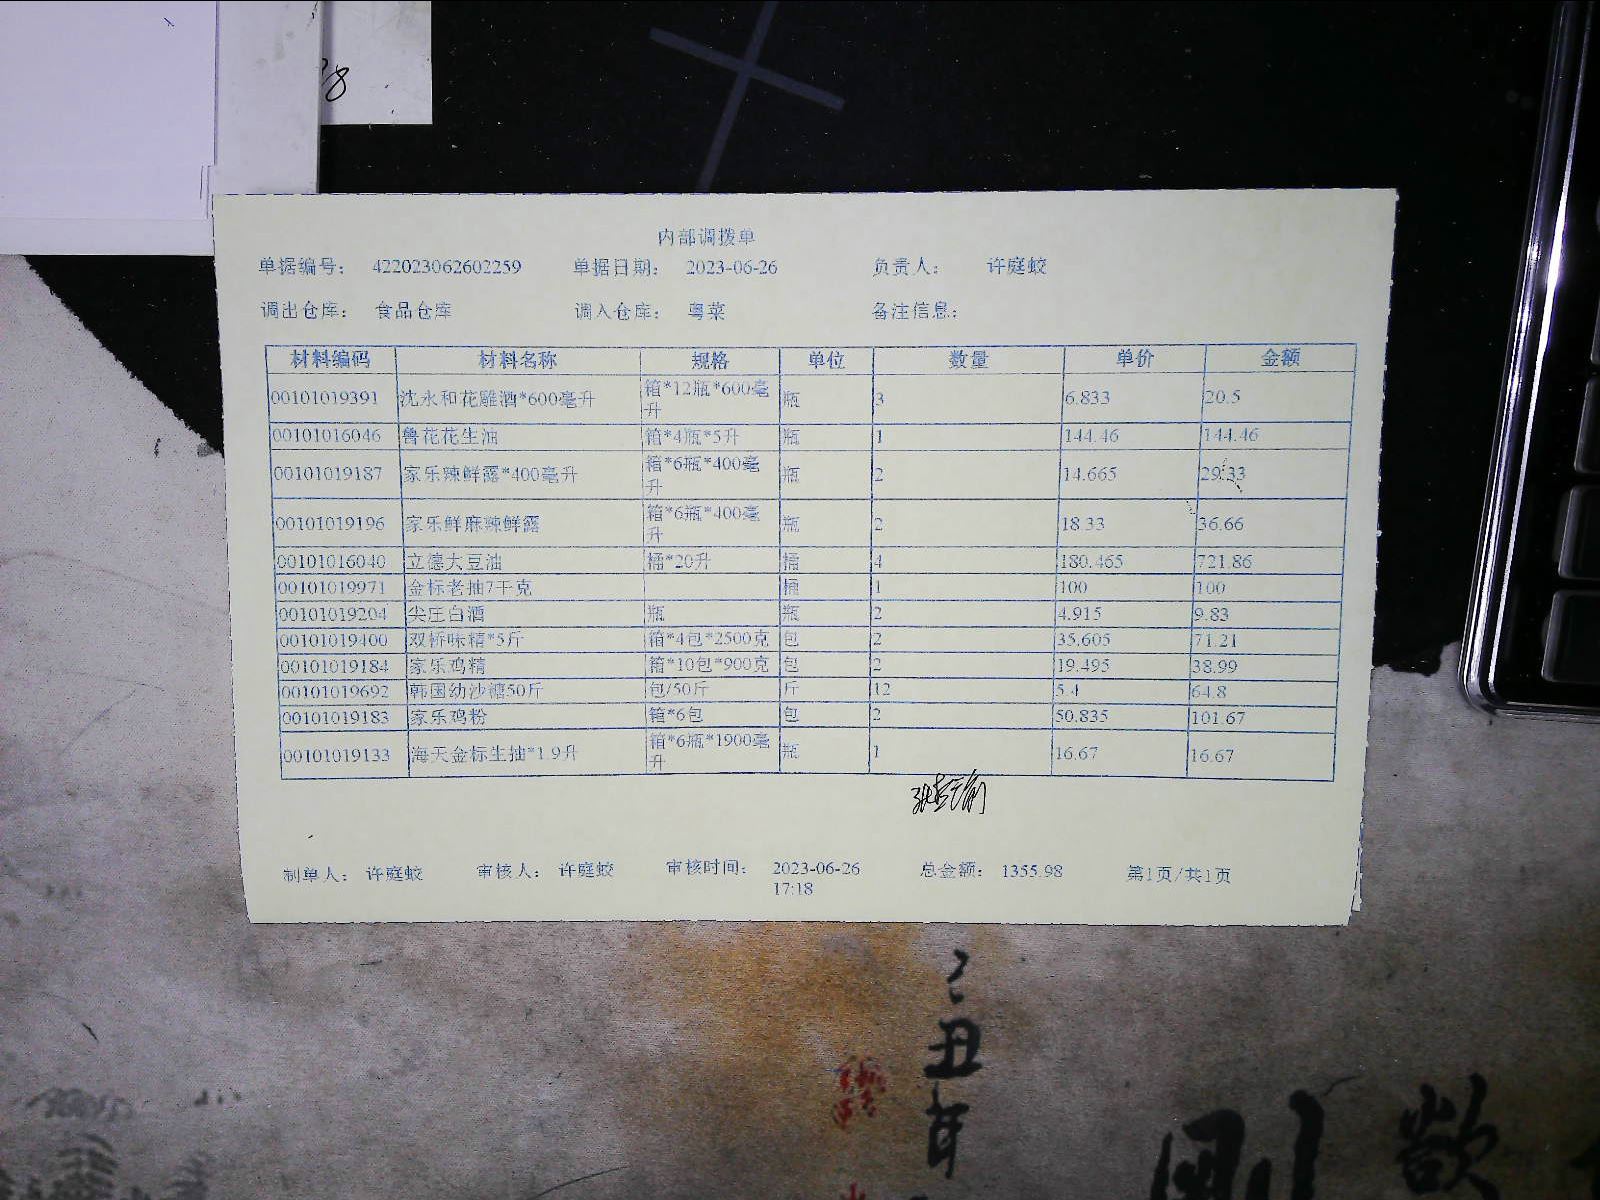 8
内部调拨单
单据编号: 422023062602259 单据日期: 2023-06-26 负责人: 许庭蛟
调出仓库: 食品仓库 调入仓库: 粤菜 备注信息:
材料编码 材料名称 规格 单位 数量 单价 金额
00101019391 沈永和花雕酒*600毫升 箱*12瓶*600毫升 瓶 3 6.833 20.5
00101016046 鲁花花生油 箱*4瓶*5升 瓶 1 144.46 144.46
00101019187 家乐辣鲜露*400毫升 箱*6瓶*400毫升 瓶 2 14.665 29.33
00101019196 家乐鲜麻辣鲜露 箱*6瓶*400毫升 瓶 2 18.33 36.66
00101016040 立德大豆油 桶*20升 桶 4 180.465 721.86
00101019971 金标老抽7千克 桶 1 100 100
00101019204 尖庄白酒 瓶 瓶 2 4.915 9.83
00101019400 双桥味精*5斤 箱*4包*2500克 包 2 35.605 71.21
00101019184 家乐鸡精 箱*10包*900克 包 2 19.495 38.99
00101019692 韩国幼沙糖50斤 包/50斤 斤 12 5.4 64.8
00101019183 家乐鸡粉 箱*6包 包 2 50.835 101.67
00101019133 海天金标生抽*1.9升 箱*6瓶*1900毫升 瓶 1 16.67 16.67
制单人: 许庭蛟 审核人: 许庭蛟 审核时间: 2023-06-26 17:18 总金额: 1355.98 第1页/共1页
丑年